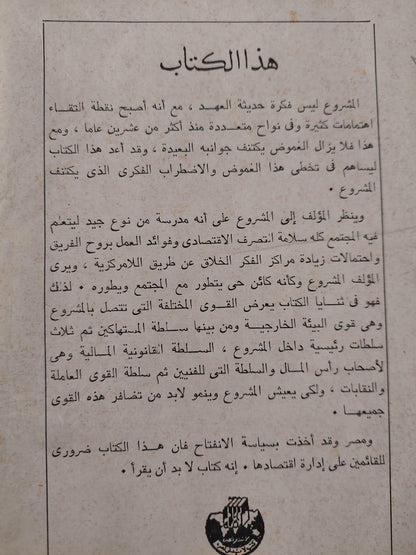 هذا الكتاب
المشروع ليس فكرة حديثة العهد ، مع أنه أصبح نقطة التقاء
اهتمامات كثيرة وفى نواح متعددة منذ أكثر من عشرين عاما ، ومع
هذا فلا يزال الغموض يكتنف جوانبه البعيدة ، وقد أعد هذا الكتاب
ليساهم فى تخطى هذا الغموض والاضطراب الفكرى الذى يكتنف
المشروع •
وينظر المؤلف إلى المشروع على أنه مدرسة من نوع جيد ليتعلم
فيه المجتمع كله سلامة التصرف الاقتصادى وفوائد العمل بروح الفريق
واحتمالات زيادة مراكز الفكر الخلاق عن طريق اللامركزية ، ويرى
المؤلف المشروع وكأنه كائن حى يتطور مع المجتمع ويطوره • لذلك
فهو فى ثنايا الكتاب يعرض القوى المختلفة التى تتصل بالمشروع
وهى قوى البيئة الخارجية ومن بينها سلطة المستهلكين ثم ثلاث
سلطات رئيسية داخل المشروع ، السلطة القانونية المالية وهى
لأصحاب رأس المال والسلطة التى للفنيين ثم سلطة القوى العاملة
والنقابات ، ولكى يعيش المشروع وينمو لابد من تضافر هذه القوى
جميعها •
ومصر وقد أخذت بسياسة الانفتاح فان هذا الكتاب ضرورى
للقائمين على إدارة اقتصادها • إنه كتاب لا بد أن يقرأ •